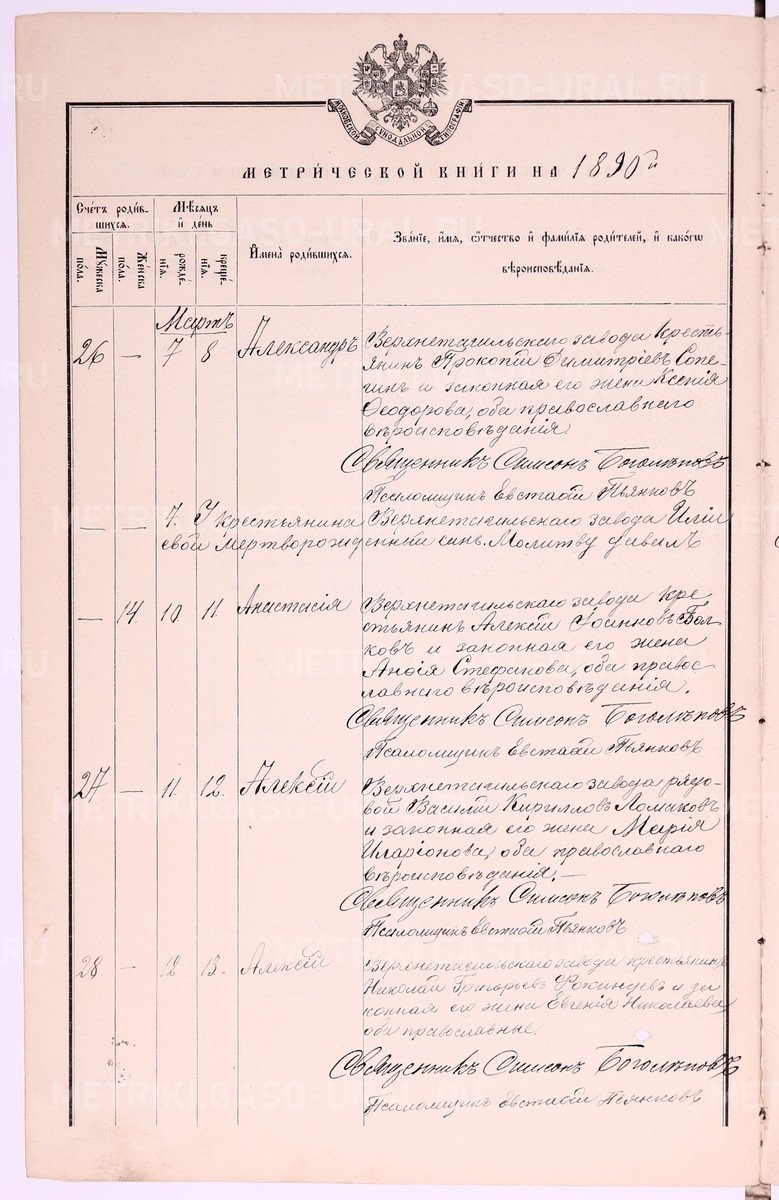 МОСКОВСКОЙ СѴНОДАЛЬНОЙ ТИПОГРАФІИ
МЕТРИ́ЧЕСКОЙ КНИ́ГИ НА 1890 й
Сче́тъ роди́в-
шихся.
Мѣ́сяцъ
и҆ де́нь
И҆мена̀ роди́вшихся.
Зва́ніе, и҆́мя, ѻ҆́тчество и҆ фами́лія роди́телей, и҆ како́гѡ
вѣроисповѣ́данія.
Мꙋ́жеска
по́ла.
Же́нска
по́ла.
рожде́-
нія.
креще́-
нія.
Мартъ
26 — 7 8 Александръ Верхнетагильскаго завода кресть-
янинъ Прокопій Димитріевъ Сопе-
гинъ и законная его жена Ксенія
Ѳеодорова, оба православнаго
вѣроисповѣданія.
Священникъ Симеонъ Боголѣповъ
Псаломщикъ Евстафій Пьянковъ
— — 7. У крестьянина Верхнетагильскаго завода Иліи
мертворожденный сынъ. Молитву давалъ
— 14 10 11 Анастасія Верхнетагильскаго завода кре-
стьянинъ Алексій Іоанновъ Вол-
ковъ и законная его жена
Анфія Стефанова, оба правос-
лавнаго вѣроисповѣданія.
Священникъ Симеонъ Боголѣповъ
Псаломщикъ Евстафій Пьянковъ
27 — 11 12. Алексій Верхнетагильскаго завода рядо-
вой Василій Кирилловъ Ломаковъ
и законная его жена Марія
Иларіонова, оба православнаго
вѣроисповѣданія. —
Священникъ Симеонъ Боголѣповъ
Псаломщикъ Евстафій Пьянковъ
28 — 12 13. Алексій Верхнетагильскаго завода крестьянинъ
Николай Григорьевъ и за
конная его жена Евгенія Николаева,
оба православные.
Священникъ Симеонъ Боголѣповъ
Псаломщикъ Евстафій Пьянковъ
METRIKI.GASO-URAL.RU